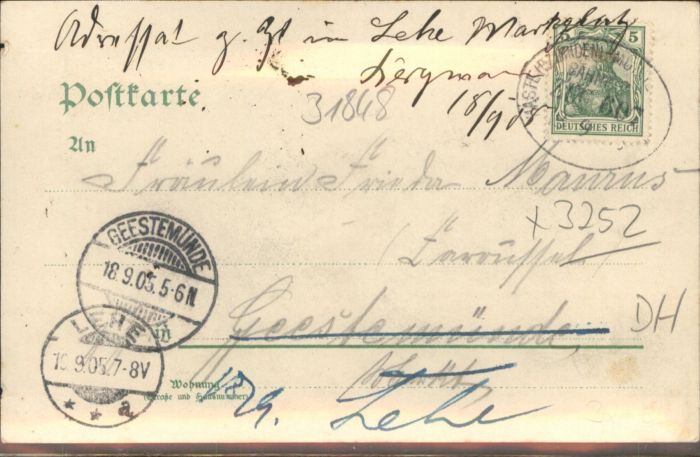 Adressat z. Zt im Lehe Marktplatz
Bergmann
18/9 05
5 5
DEUTSCHES REICH
Postkarte
31848
An
Fräulein Frieda Maurus
x 3252
Caroussel
GEESTEMÜNDE
18.9.05.5-6N
DH
in Geestemünde
LEHE
9.05.7-8V
* * a
Wohnung
(Straße und Hausnummer)
Lehe